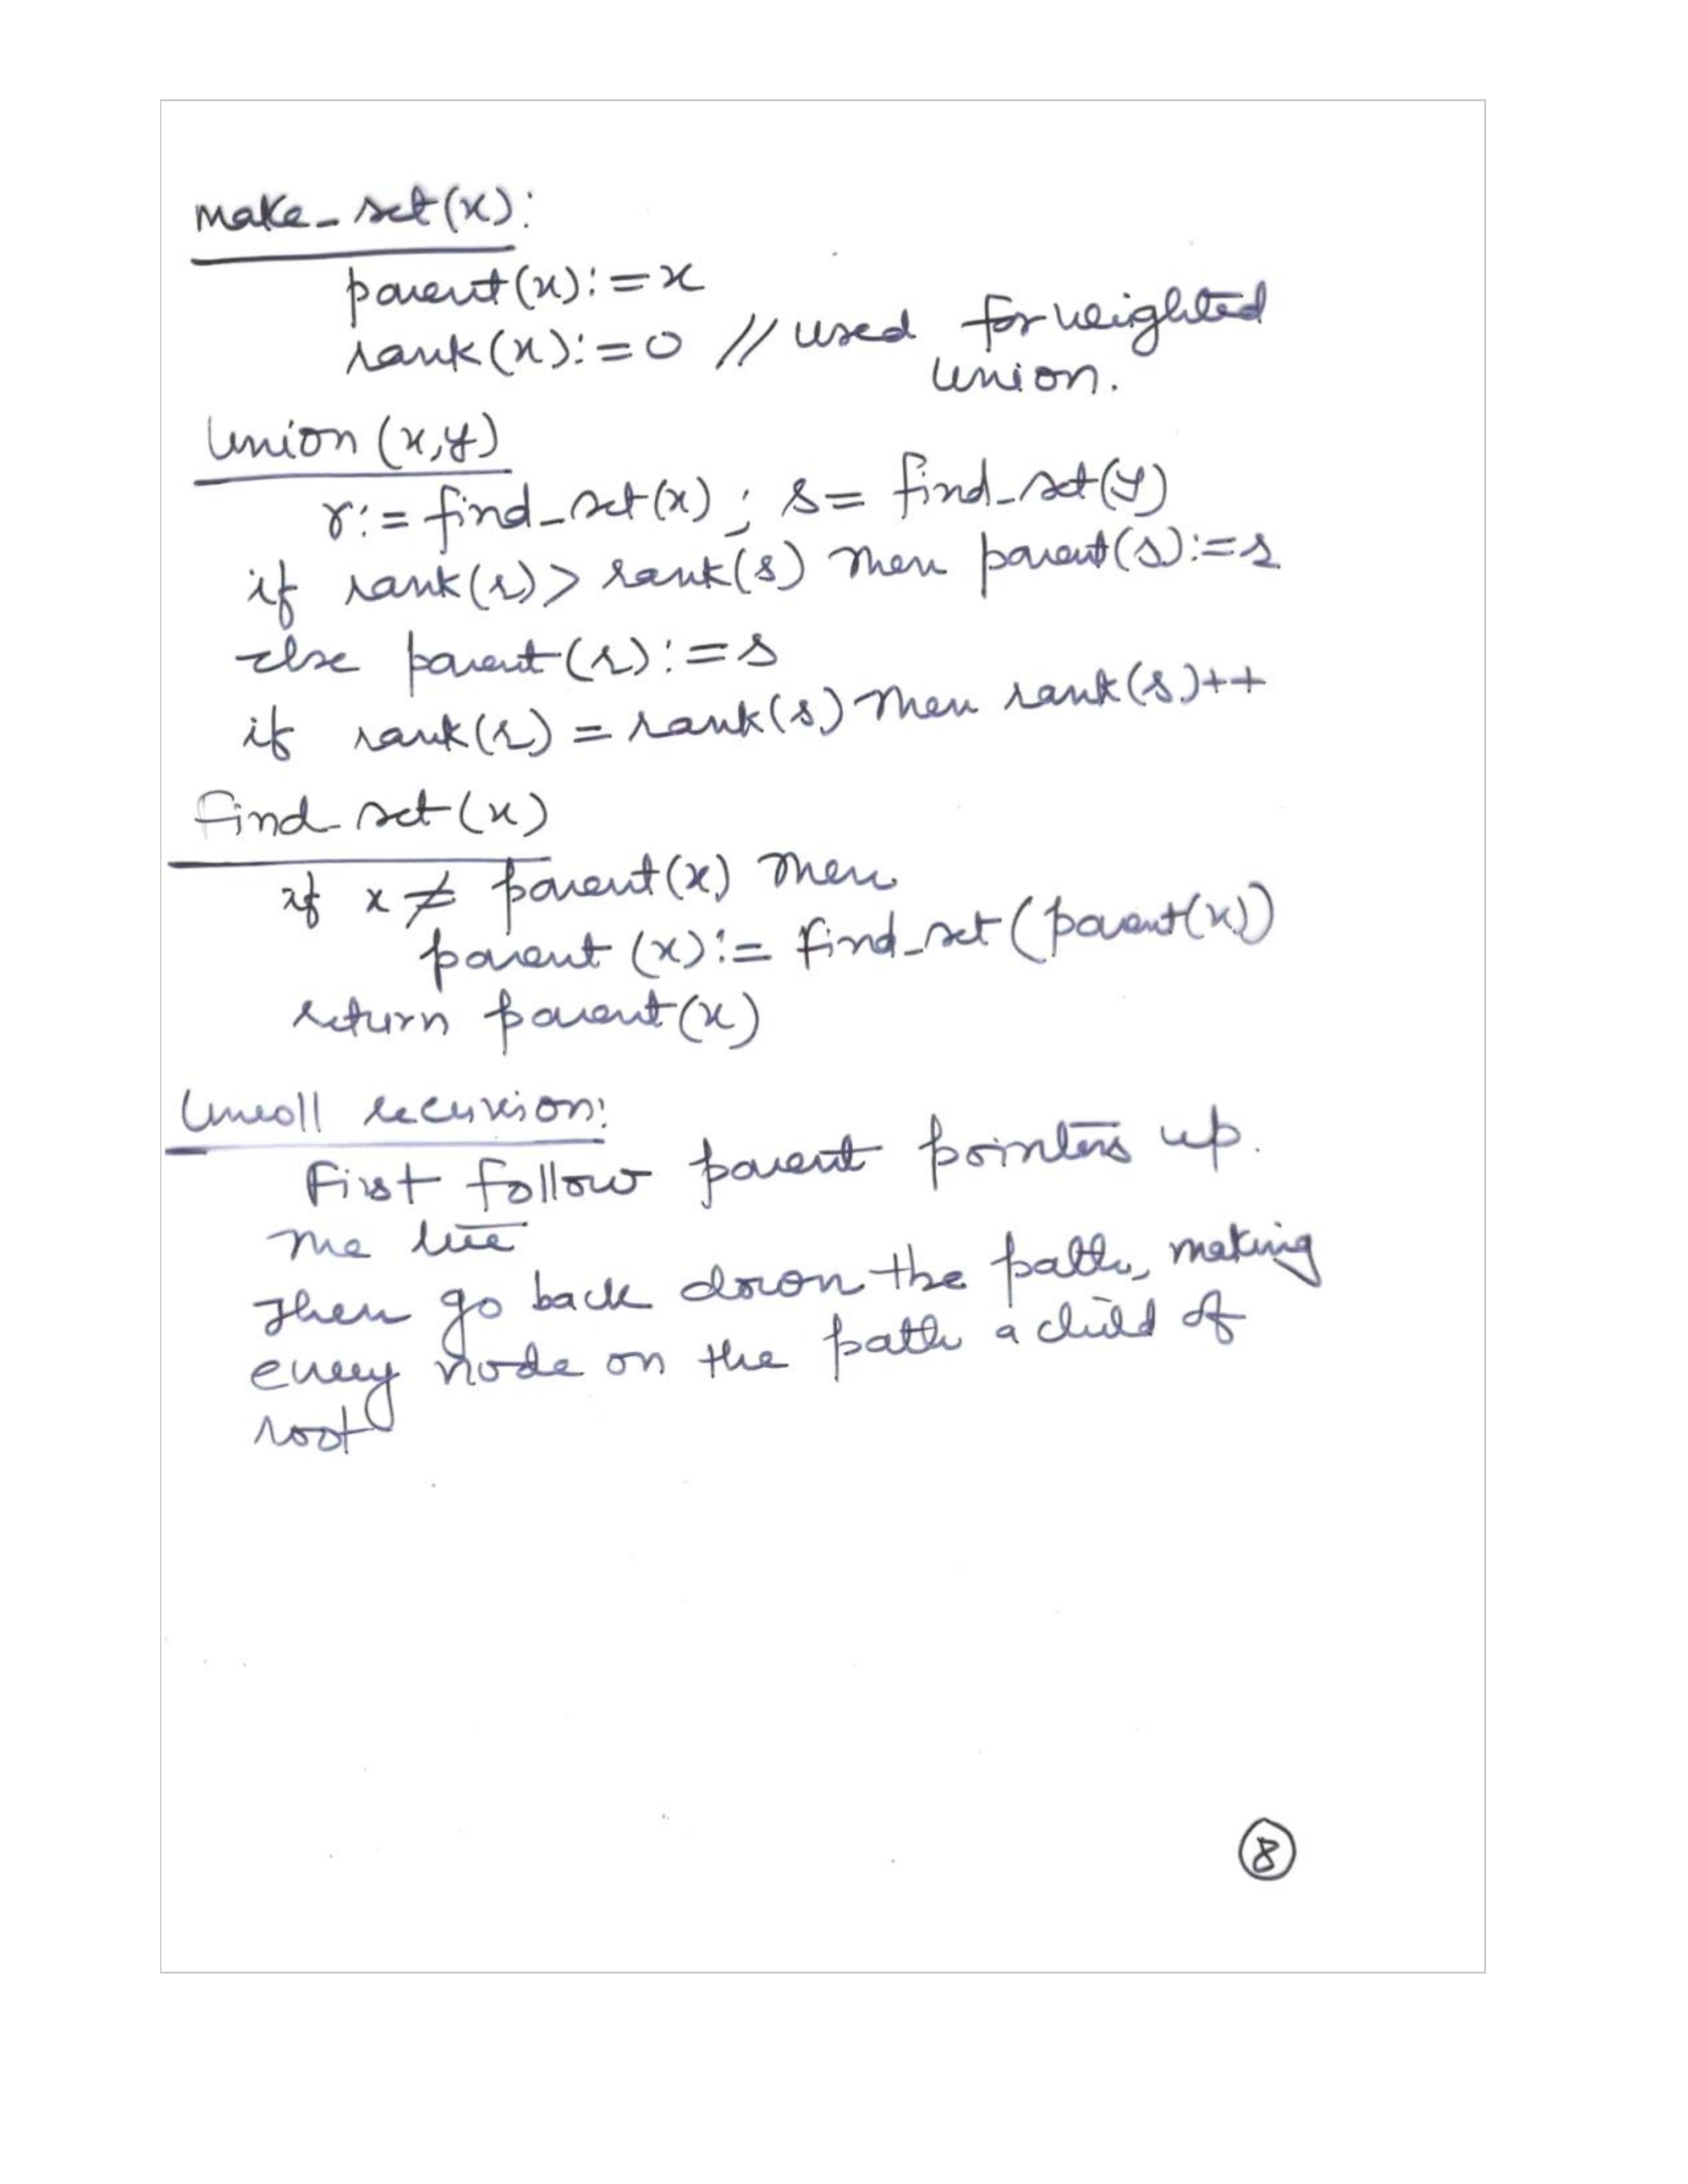 make_set(x):
parent(x):=x
rank(x):=0 // used for weighted
union.
Union (x,y)
r:= find_set(x) ; s= find_set(y)
if rank(r)> rank(s) then parent(s):=r
else parent(r):=s
if rank(r) = rank(s) then rank(s)++
find_set(x)
if x ≠ parent(x) then
parent (x):= find_set (parent(x))
return parent(x)
Unroll recursion:
First follow parent pointers up.
the tree
Then go back down the path, making
every node on the path a child of
root
8